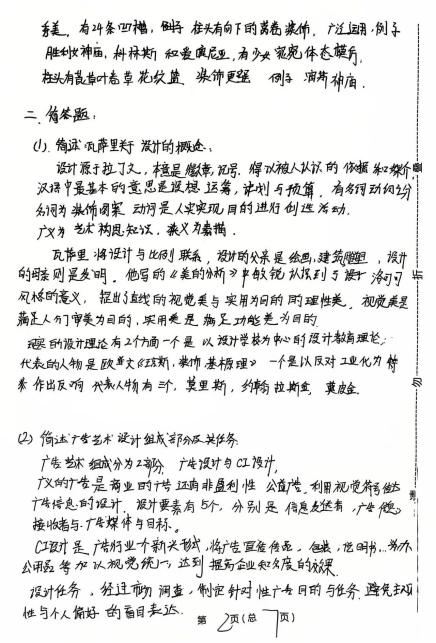 秀美，有24条凹槽，例子 柱头有向下的涡卷装饰，广泛运用，例子
胜利女神庙，科林斯 和 爱奥尼亚，有少女 窈窕体态横肩，
柱头有莨菪叶卷草花纹篮 装饰更强 例子 宙斯神庙．
二、简答题：
(1) 简述瓦萨里关于设计的概述：
设计源于拉丁文，本意是徽章，记号．得以被人认识的 依据和媒介
汉语中最基本的意思是设想 运筹，计划与预算．有名词动词之分
名词为 装饰图案 动词是人实现目的进行创造活动．
广义为 艺术构思知识，狭义为素描．
瓦萨里 将设计与比例联系，设计的父亲是绘画，建筑 ，设计
的母亲则是发明．他写的《美的分析》中敏锐认识到与 洛可可
风格的意义，提出了直线的视觉美与实用为目的的理性美．视觉美是
满足人们审美为目的，实用美是 满足功能美为目的
现在的设计理论有2个方面一个是 以设计学校为中心的设计教育理论，
代表的人物是欧文《琼斯，装饰基本原理》 一个是以反对工业化为
作出反响 代表人物有三个．莫里斯，约翰拉斯金，莫
(2) 简述广告艺术设计组成部分及其任务
广告艺术组成分为2部分 广告设计与CI设计，
广义的广告是商业的广告 还有非盈利性 公益广告．利用视觉符号传达
广告信息的设计．设计要素有5个，分别是 信息发送者，广告信息，
接收者与广告媒体与目标。
CI设计是 广告行业个新兴形式，将广告宣传传品，包装，说明书，办
公用品等加以视觉统一，达到提高企业知名度的效果．
设计任务，经过市场调查，制定针对性广告目的与任务．避免主观
性与个人偏好的盲目表达．
第 2 页(总 7 页)